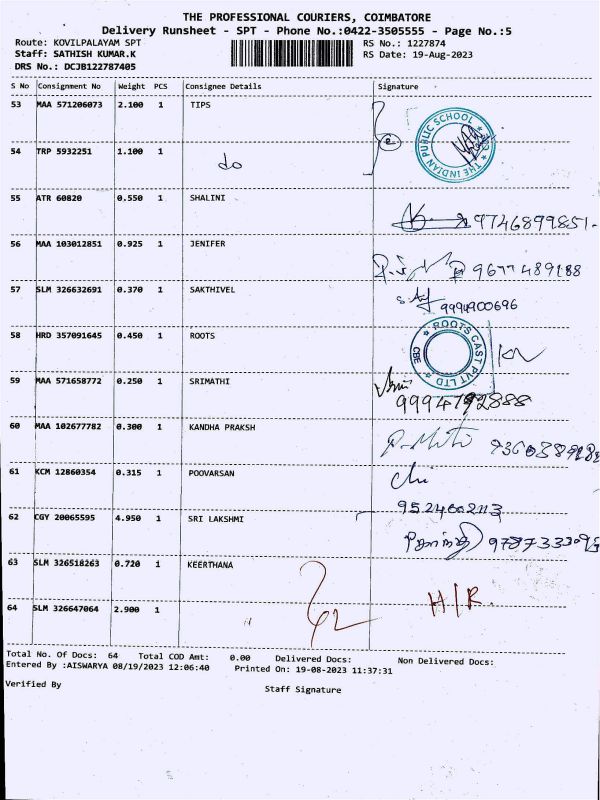 THE PROFESSIONAL COURIERS, COIMBATORE
Delivery Runsheet - SPT - Phone No.:0422-3505555 - Page No.:5
Route: KOVILPALAYAM SPT RS No.: 1227874
Staff: SATHISH KUMAR.K RS Date: 19-Aug-2023
DRS No.: DCJB122787405
S No Consignment No Weight PCS Consignee Details Signature
53 MAA 571206073 2.100 1 TIPS
THE INDIAN PUBLIC SCHOOL
54 TRP 5932251 1.100 1 do
55 ATR 60820 0.550 1 SHALINI
9746899851-
56 MAA 103012851 0.925 1 JENIFER
9677489188
57 SLM 326632691 0.370 1 SAKTHIVEL
9994900696
58 HRD 357091645 0.450 1 ROOTS
ROOTS CAST PVT LTD CBE
59 MAA 571658772 0.250 1 SRIMATHI
9994792888
60 MAA 102677782 0.300 1 KANDHA PRAKSH
61 KCM 12860354 0.315 1 POOVARSAN
9524602113
62 CGY 20065595 4.950 1 SRI LAKSHMI
63 SLM 326518263 0.720 1 KEERTHANA
H/R.
64 SLM 326647064 2.900 1
Total No. Of Docs: 64 Total COD Amt: 0.00 Delivered Docs: Non Delivered Docs:
Entered By :AISWARYA 08/19/2023 12:06:40 Printed On: 19-08-2023 11:37:31
Verified By Staff Signature